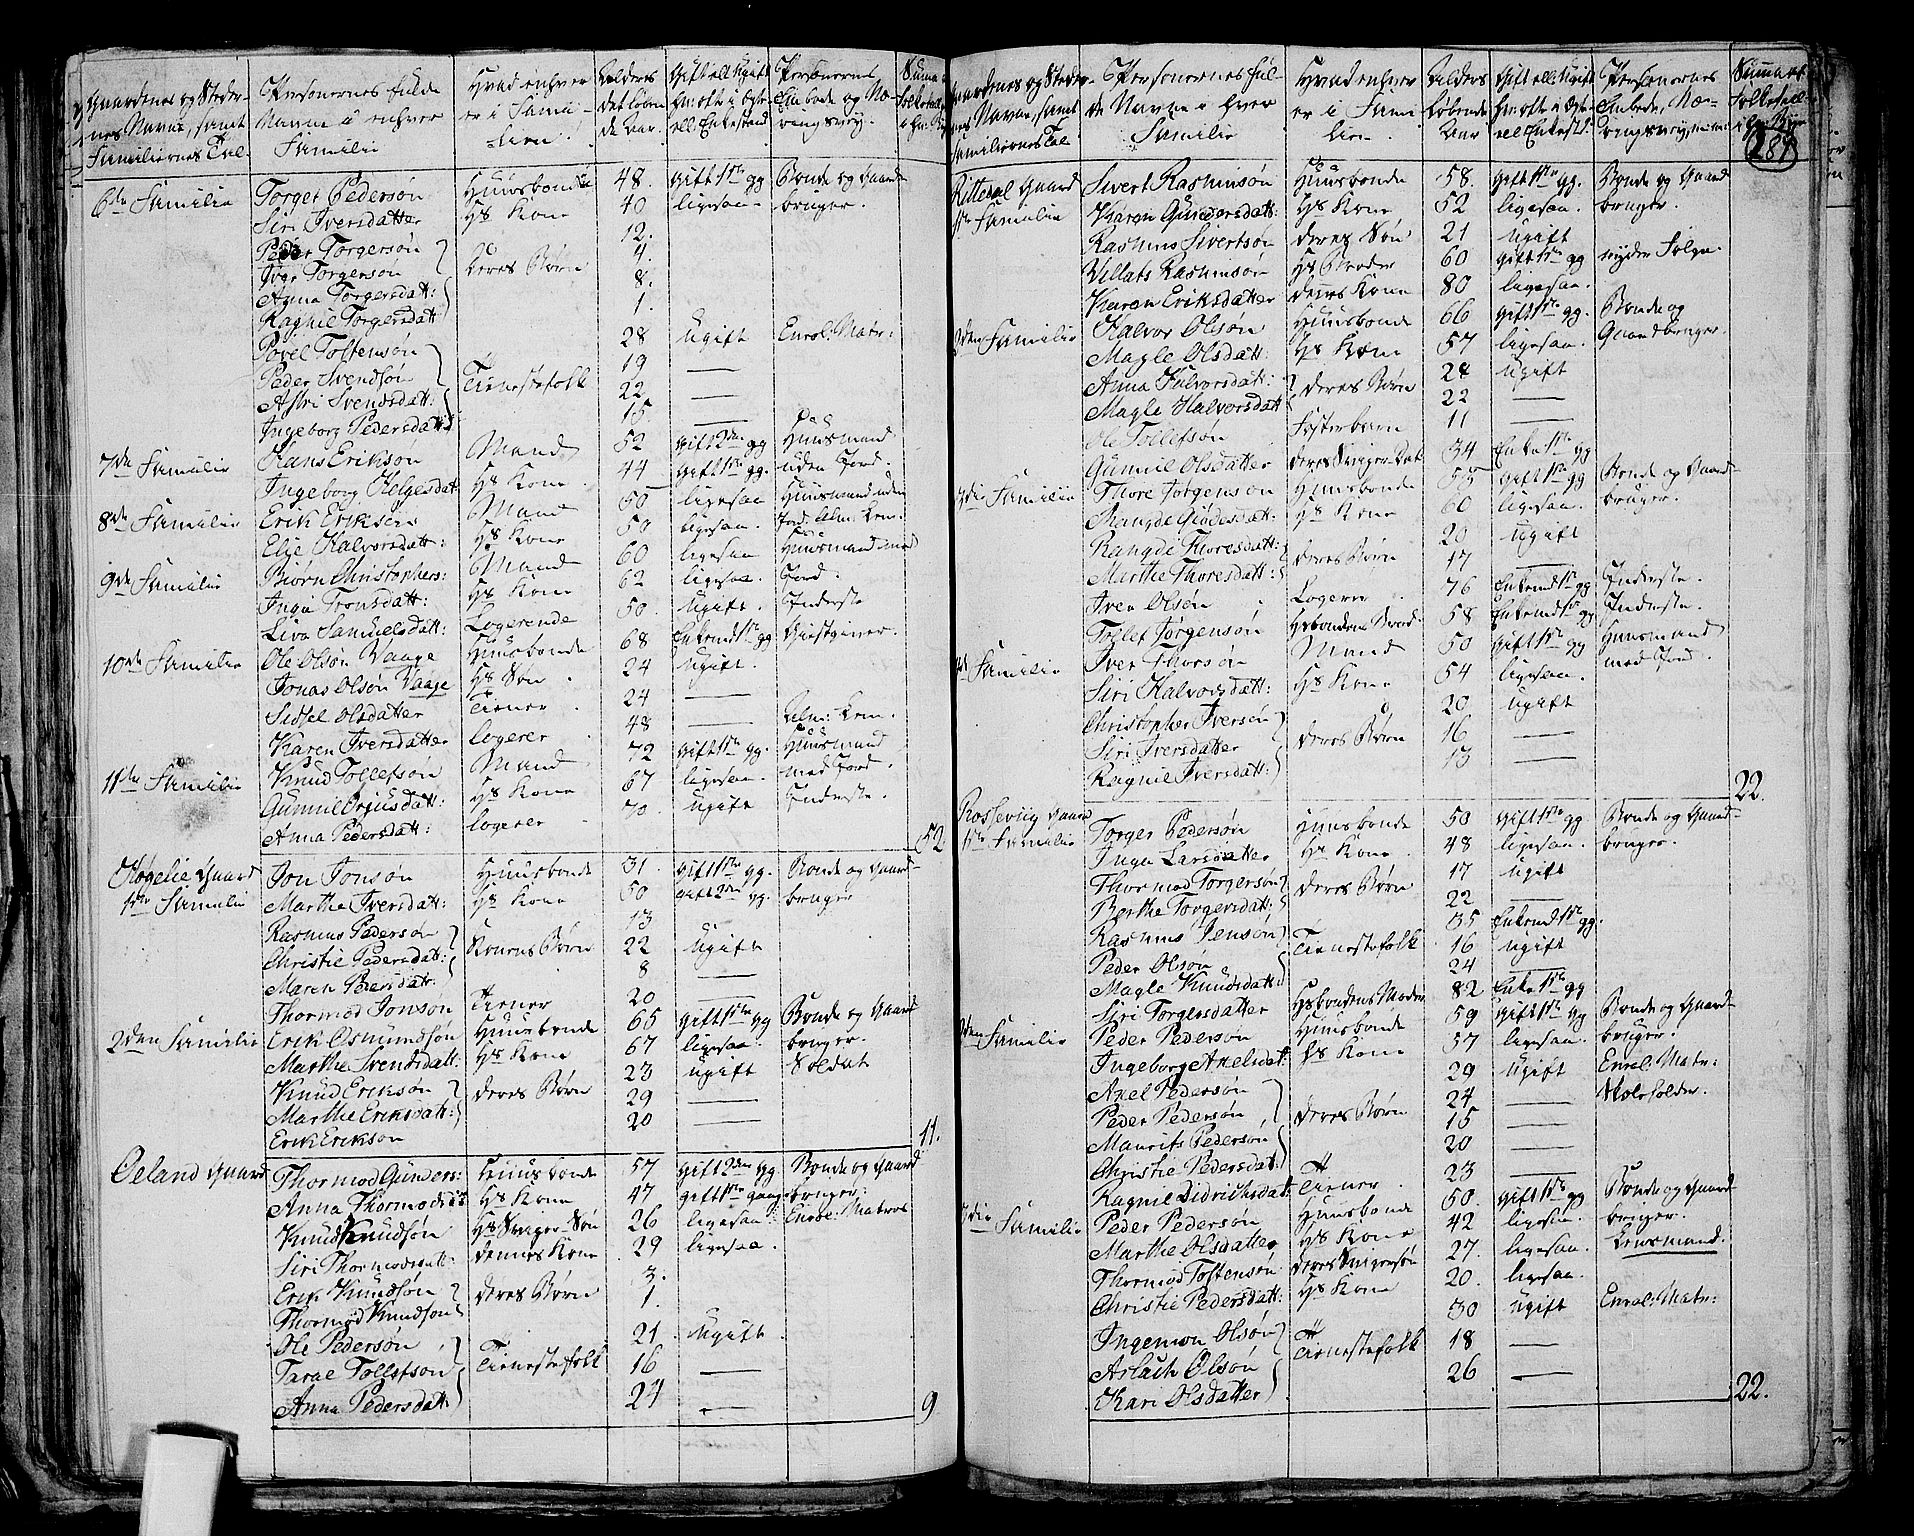 Gaardenes og Steder-
nes Navne, samt
Familiernes Tal
Personernes fulde
Navne i enhver
Familie
Hvad enhver
er i Fami-
lien.
Alderes
det løben
de Aar.
Gift ell. Ugift
hv: ofte i Egte
ell: Enkestand
Personernes
Embede og Næ-
ringsvey.
6te Familie Torger Pedersøn Huusbonde 48. Gift 1ste gg Bonde og Gaard
Siri Iversdatter Hs Kone 40 ligesaa bruger.
Peder Torgersøn 12.
Iver Torgersøn Deres Børn 4.
Anna Torgersdatt: 8.
Ragnil Torgersdatt 1.
Povel Tostensøn 28 Ugift Enrol: Matr:
Peder Svendsøn 19 —
Astri Svendsdatt: Tienestefolk 22 —
Ingeborg Pedersdatt 15 —
7de Familie Hans Erikson Mand 52 Gift 2den gg Huusmand
Ingeborg Helgesdat Hs Kone 44 Gift 1ste gg. uden Jord.
8de Familie Erik Eriksen Mand 50 ligesaa Huusmand uden
Elie Halvorsdatt: Hs Kone 50 ligesaa. Jord. Alm: Lem.
9de Familie Biørn Christophers: Mand 60 ligesaa Huusmand med
Inga Tronsdatt: Hs Kone 62 ligesaa. Jord.
Liva Samuelsdatt: Logerende 50. Ugift. Inderste
10de Familie Ole Olsøn Vaage Huusbonde 68 Enkemd 1ste gg Giestgiver.
Jonas Olsøn Vaage Hs Søn 24 Ugift.
Sidsel Olsdatter Tiener 24 —
Karen Iversdatter Logerer 48 — Alm: Lem.
11te Familie Knud Tollefsøn Mand 72 Gift 1ste gg. Huusmand
Gunnil Orjusdatt: Hs Kone 67 ligesaa. med Jord.
Anna Pedersdatt: logerer 70. Ugift Inderste. 52
Høgelie Gaard Jon Jonsøn Huusbonde 31. Gift 1ste gg. Bonde og Gaard-
1ste Familie Marthe Iversdatt: Hs Kone 50 Gift 2den gg. bruger
Rasmus Pedersøn 13
Christie Pedersdatt: Konens Børn 22 Ugift
Maren Pedersdatt: 8 —
Thormod Jonson Tiener 20 —
2den Familie Erik Osmundsøn Huusbonde 65 Gift 1ste gg Bonde og Gaard
Marthe Svendsdatt: Hs Kone 67 ligesaa. bruger.
Knud Eriksøn 23 Ugift Soldat
Marthe Eriksdatt: deres Børn 29 —
Erik Erikson 20 — 11.
Øeland Gaard Thormod Gunders: Huusbonde 57 Gift 2den gg Bonde og Gaard
Anna Thormodsd: Hs Kone 47 Gift 1ste gang bruger.
Knud Knudsøn Hs Sviger Søn 26 ligesaa Enrol: Matros
Siri Thormodsdatt: dennes Kone 29 ligesaa.
Erik Knudsøn deres Børn 3.
Thormod Knudsøn 1.
Ole Pedersøn 21. Ugift.
Taral Tollefsøn Tienestefolk 16 —
Anna Pedersdatt: 24 — 9
Gaardenes og Steder-
nes Navne, samt
Familiernes Tal
Personernes ful-
de Navne i hver
Familie
Hvad enhver
er i Fami
lien.
Alders
løbende
Aar
Gift ell: Ugift
hv: ofte i Egte
ell Enkest:
Personernes
Embede, Næ-
ringsvey,
Summa af
Folketall
i hv: Bye
284
Ritteval Gaard Sivert Rasmusøn Huusbonde 58. Gift 1ste gg. Bonde og Gaard
1ste Familie Karen Gundersdatt: Hs Kone 52 ligesaa. bruger.
Rasmus Sivertsøn deres Søn 21 Ugift
Villats Rasmusøn Hs Broder 60 Gift 1ste gg nyder Folge.
Karen Eriksdatter dennes Kone 80 ligesaa.
2den Familie Halvor Olsøn Huusbonde 66 Gift 1ste gg. Bonde og
Magle Olsdatt: Hs Kone 57 ligesaa. Gaardbruger.
Anna Halvorsdatt: deres Børn 28 Ugift
Magle Halvorsdatt 22 —
Ole Tollefsøn Fosterbarn 11 —
Gunnil Olsdatter deres Sviger Dat 34 Enke 1ste gg
3die Familie Thore Jørgensøn Huusbonde 55 Gift 1ste gg Bonde og Gaard-
Hs Kone 60 ligesaa. bruger.
Rangde Thoresdatt: 20 Ugift
Marthe Thoresdatt: deres Børn 17 —
Iver Olsøn Logerer 76 Enkemd 1ste gg Inderste.
Tollef Jørgensøn 58 Enkemd 1ste gg Inderste.
Familie Iver Thorsøn Mand 50 Gift 1ste gg Huusmand
Siri Halvorsdatt: Hs Kone 54 ligesaa. med Jord.
Christopher Iversøn 20 Ugift
Siri Iversdatter deres Børn 16 —
Ragnil Iversdatt: 13 — 22.
Rossevig Gaard
1ste Familie Torger Pedersøn Huusbonde 50 Gift 1ste gg Bonde og Gaard-
Inga Larsdatter Hs Kone 48 ligesaa. bruger.
Thormod Torgersøn deres Børn 17 Ugift
Berthe Torgersdatt: 22 —
Rasmus Jensøn 35 Enkemd 1ste gg.
Peder Olsøn Tienestefolk 16 Ugift
Magle Knudsdatt: 24 —
Siri Torgersdatter Hsbondens Moder 82 Enke 1ste gg
2den Familie Peder Pedersøn Huusbonde 59 Gift 1ste gg Bonde og Gaard
Ingeborg Axelsdat: Hs Kone 57 ligesaa. bruger
Axel Pedersøn 29 Ugift Enrol: Matr:
Peder Pedersøn deres Børn 24 — Skoleholder.
Maurits Pedersøn 15 —
Christie Pedersdatt: 20 —
Ragnil Didrichsdat: Tiener. 23 —
3die Familie Peder Pedersøn Huusbonde 50. Gift 1ste gg Bonde og Gaard
Marthe Olsdatter Hs Kone 42 ligesaa. bruger.
Thormod Tostensøn deres Svigersøn 27. ligesaa. Lensmand.
Christie Pedersdatt: Hs Kone 20. ligesaa.
Ingemon Olsøn 30 Ugift Enrol: Matr:
Aslach Olsøn Tienestefolk 18 —
Kari Olsdatter 26 — 22.